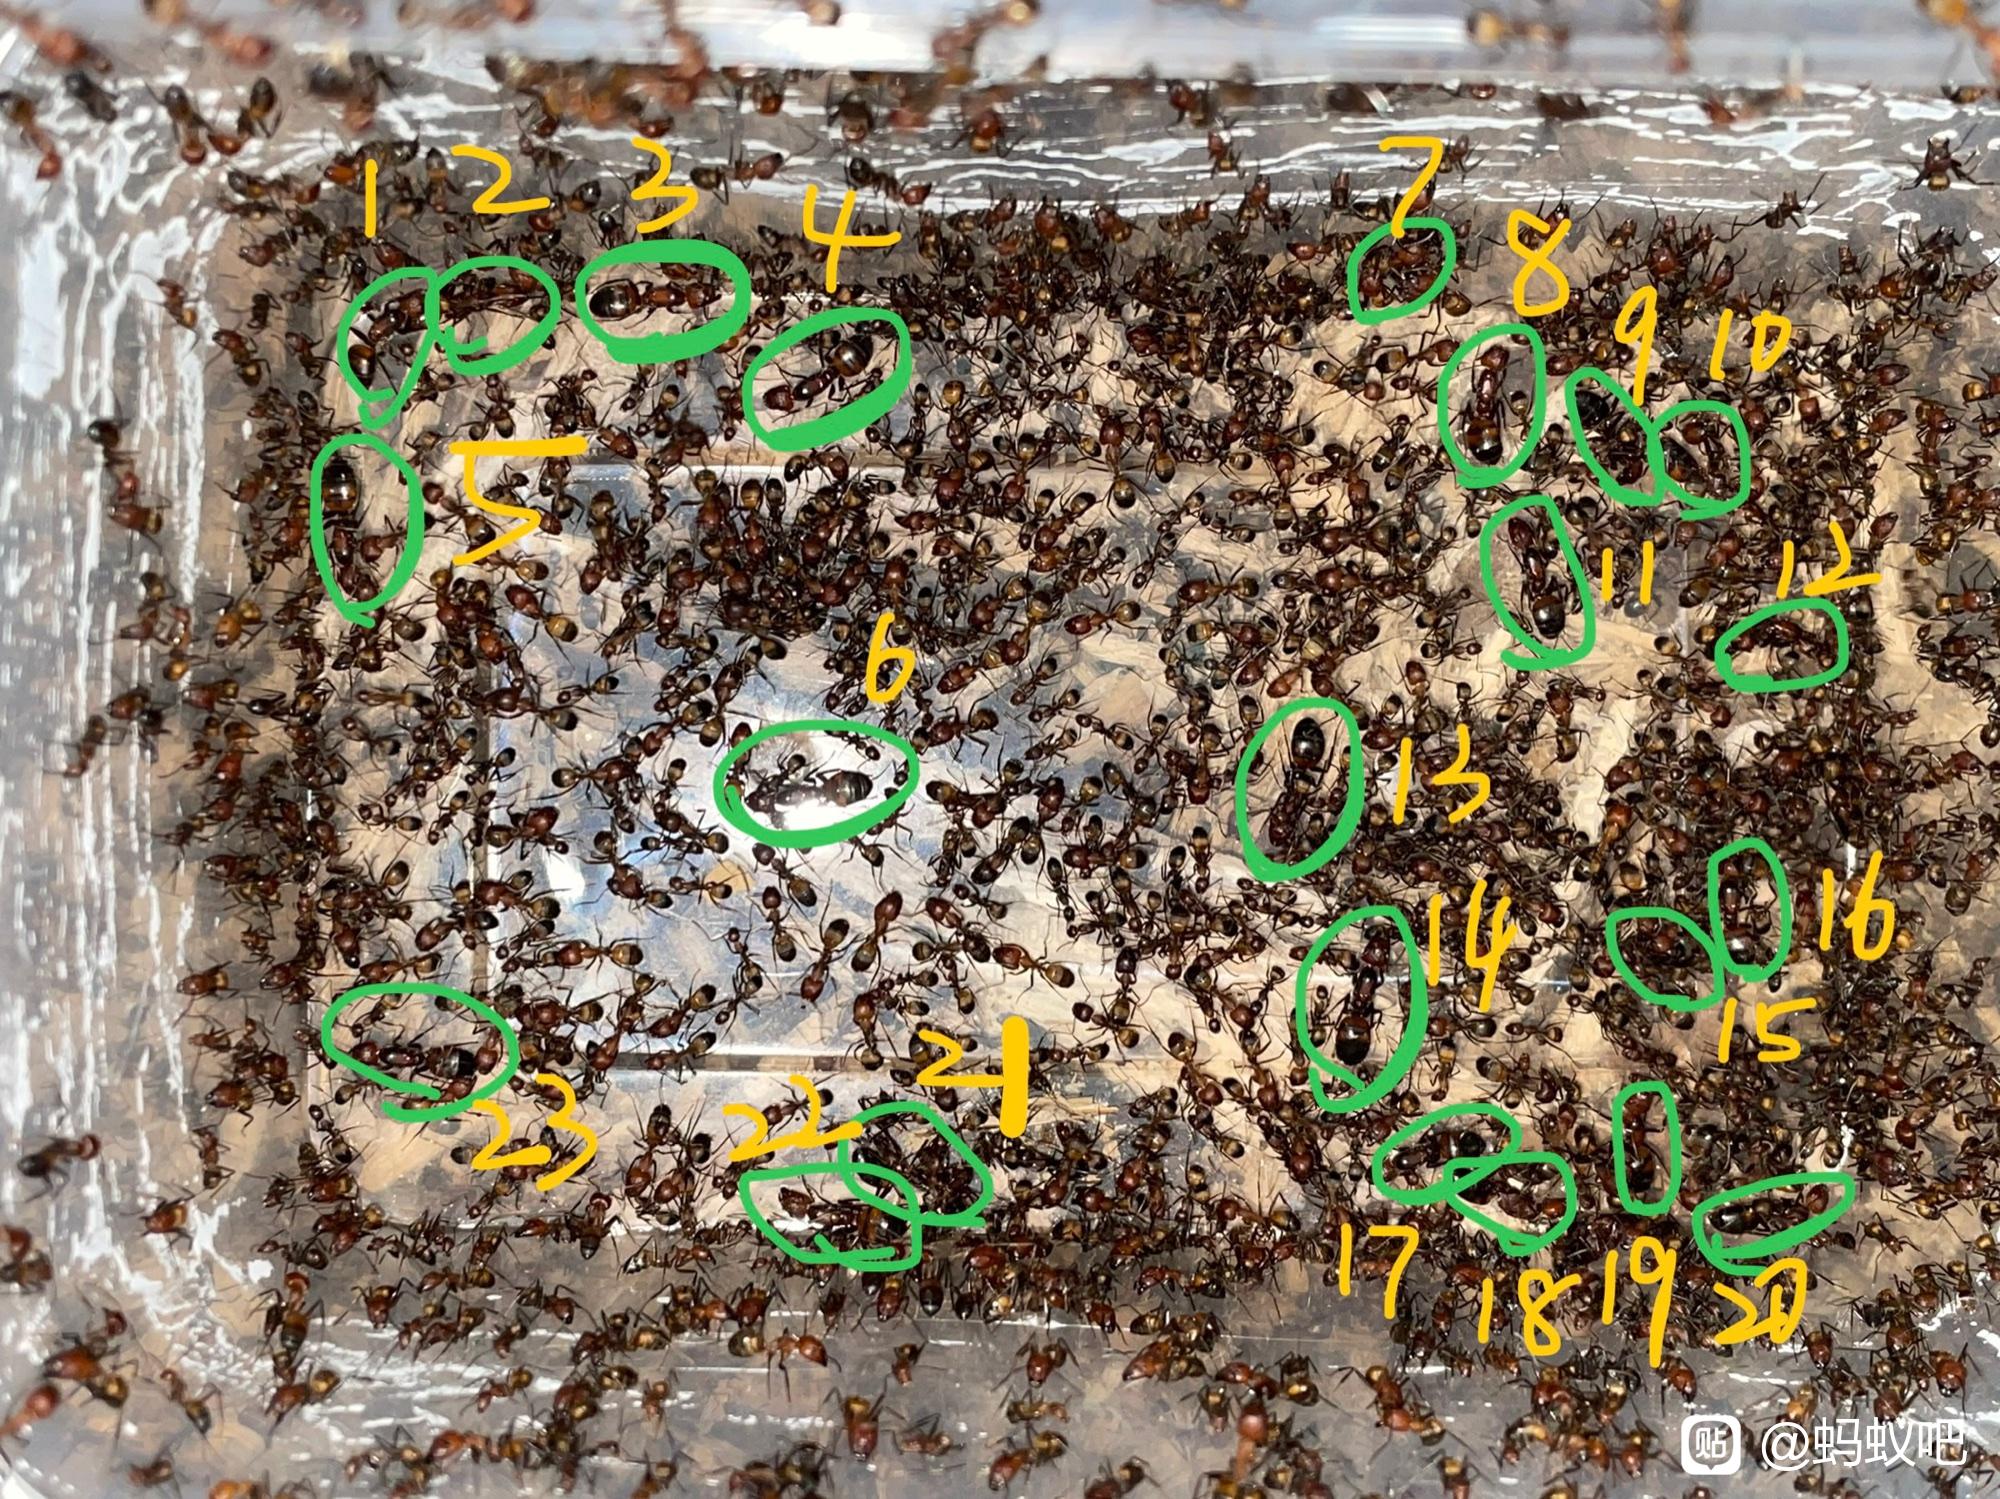 1
2
3
4
7
8
9
10
5
11
12
6
13
14
16
15
21
22
23
17
18
19
20
贴 @蚂蚁吧